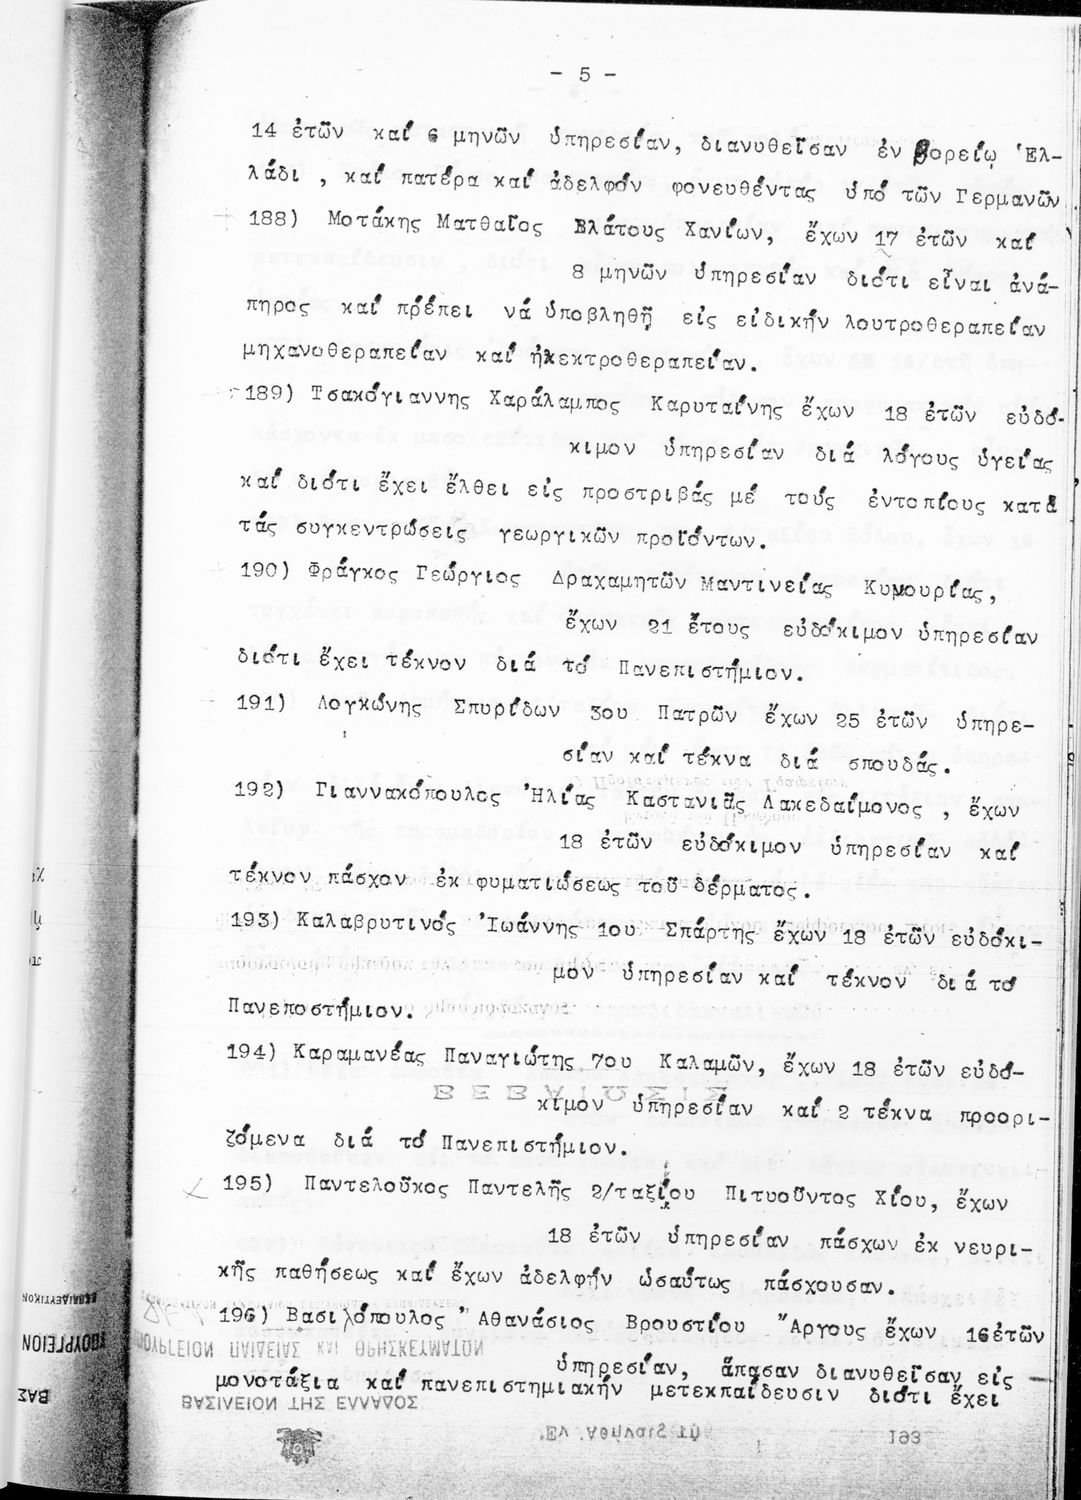 - 5 -
14 ἐτῶν καί 6 μηνῶν ὑπηρεσίαν, διανυθεῖσαν ἐν βορείῳ Ἑλ-
λάδι , καί πατέρα καί ἀδελφόν φονευθέντας ὑπό τῶν Γερμανῶν
188) Μοτάκης Ματθαῖος Βλάτους Χανίων, ἔχων 17 ἐτῶν καί
8 μηνῶν ὑπηρεσίαν διότι εἶναι ἀνά-
πηρος καί πρέπει νά ὑποβληθῇ εἰς εἰδικήν λουτροθεραπείαν
μηχανοθεραπείαν καί ἠλεκτροθεραπείαν.
189) Τσακόγιαννης Χαράλαμπος Καρυταίνης ἔχων 18 ἐτῶν εὐδό-
κιμον ὑπηρεσίαν διά λόγους ὑγείας
καί διότι ἔχει ἔλθει εἰς προστριβάς μέ τούς ἐντοπίους κατά
τάς συγκεντρώσεις γεωργικῶν προϊόντων.
190) Φράγκος Γεώργιος Δραχαμητῶν Μαντινείας Κυνουρίας,
ἔχων 21 ἔτους εὐδόκιμον ὑπηρεσίαν
διότι ἔχει τέκνον διά τό Πανεπιστήμιον.
191) Λογκώνης Σπυρίδων 3ου Πατρῶν ἔχων 25 ἐτῶν ὑπηρε-
σίαν καί τέκνα διά σπουδάς.
192) Γιαννακόπουλος Ἠλίας Καστανιᾶς Λακεδαίμονος , ἔχων
18 ἐτῶν εὐδόκιμον ὑπηρεσίαν καί
τέκνον πάσχον ἐκ φυματιώσεως τοῦ δέρματος.
193) Καλαβρυτινός Ἰωάννης 1ου Σπάρτης ἔχων 18 ἐτῶν εὐδόκι-
μον ὑπηρεσίαν καί τέκνον διά τό
Πανεποστήμιον.
194) Καραμανέας Παναγιώτης 7ου Καλαμῶν, ἔχων 18 ἐτῶν εὐδό-
κιμον ὑπηρεσίαν καί 2 τέκνα προορι-
ζόμενα διά τό Πανεπιστήμιον.
195) Παντελοῦκος Παντελῆς 2/ταξίου Πιτυοῦντος Χίου, ἔχων
18 ἐτῶν ὑπηρεσίαν πάσχων ἐκ νευρι-
κῆς παθήσεως καί ἔχων ἀδελφήν ὡσαύτως πάσχουσαν.
196) Βασιλόπουλος Ἀθανάσιος Βρουστίου Ἄργους ἔχων 16ἐτῶν
ὑπηρεσίαν, ἅπασαν διανυθεῖσαν εἰς
μονοτάξια καί πανεπιστημιακήν μετεκπαίδευσιν διότι ἔχει
ΥΠΟΥΡΓΕΙΟΝ ΠΑΙΔΕΙΑΣ ΚΑΙ ΘΡΗΣΚΕΥΜΑΤΩΝ
ΒΑΣΙΛΕΙΟΝ ΤΗΣ ΕΛΛΑΔΟΣ